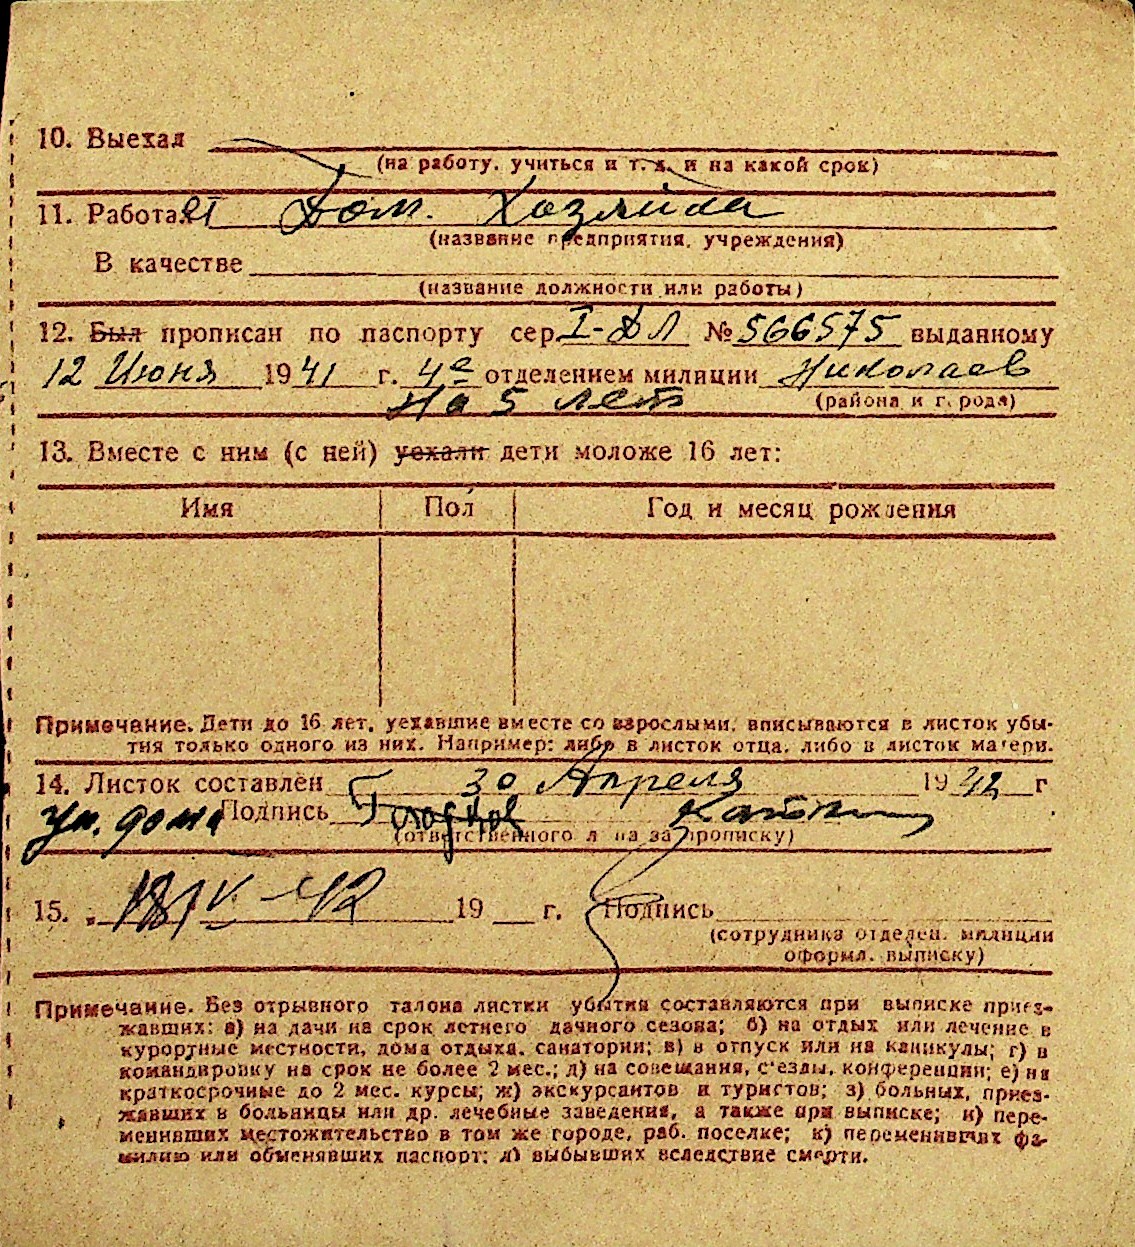 10. Выехал
(на работу, учиться и т. д. и на какой срок)
11. Работает Дом. Хозяйка
(название предприятия, учреждения)
В качестве
(название должности или работы)
12. Был прописан по паспорту сер. I-ДЛ № 566575 выданному
12 Июня 1941 г. 4е отделением милиции Николаев
На 5 лет (района и города)
13. Вместе с ним (с ней) уехали дети моложе 16 лет:
Имя Пол Год и месяц рождения
Примечание. Дети до 16 лет, уехавшие вместе со взрослыми, вписываются в листок убы-
тия только одного из них. Например: либо в листок отца, либо в листок матери.
14. Листок составлен 30 Апреля 1942 г
уп. дома Подпись
(ответственного л на за прописку)
15. „ IV-42 19 г. Подпись
(сотрудника отделен. милиции
оформл. выписку)
Примечание. Без отрывного талона листки убытия составляются при выписке приез-
жавших: а) на дачи на срок летнего дачного сезона; б) на отдых или лечение в
курортные местности, дома отдыха, санатории; в) в отпуск или на каникулы; г) в
командировку на срок не более 2 мес.; д) на совещания, съезды, конференции; е) на
краткосрочные до 2 мес. курсы; ж) экскурсантов и туристов; з) больных, приез-
жавших в больницы или др. лечебные заведения, а также при выписке; и) пере-
менивших местожительство в том же городе, раб. поселке; к) переменивших фа-
милию или обменявших паспорт; л) выбывших вследствие смерти.